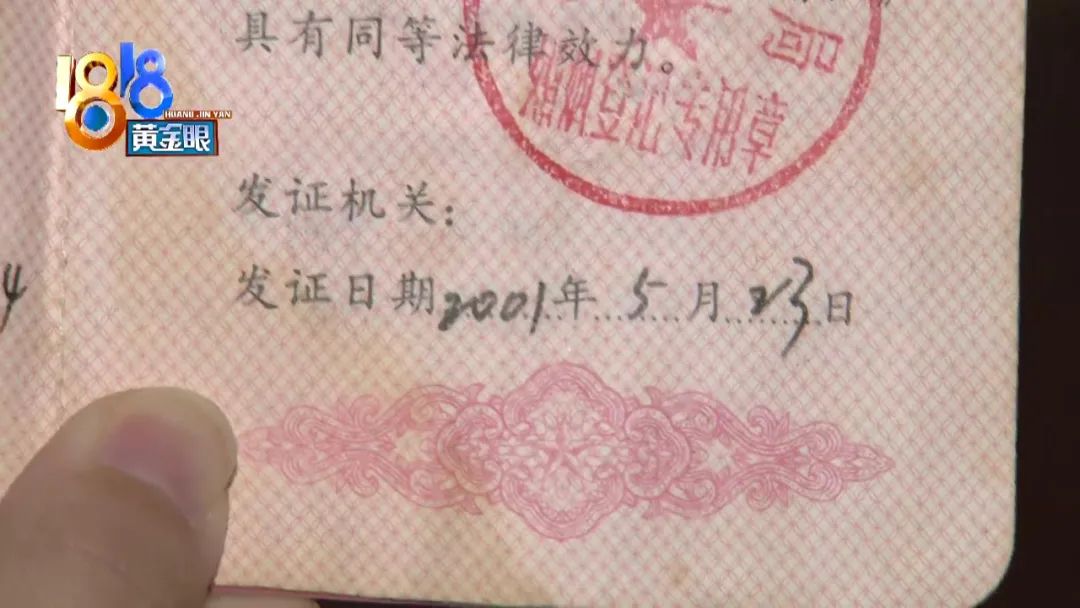 具有同等法律效力。
局
婚姻登记专用章
1818
HUANG JIN YAN
黄金眼
发证机关：
发证日期2001年5月23日
4